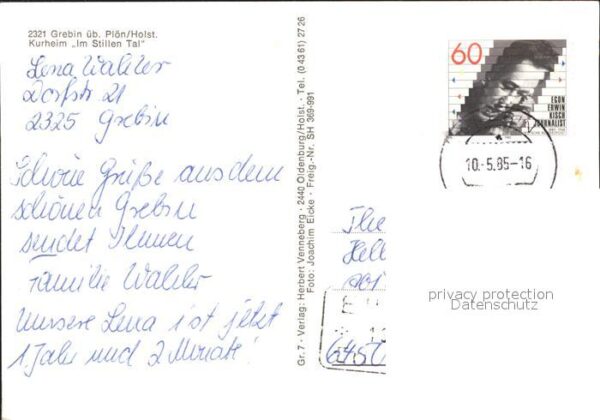 2321 Grebin üb. Plön/Holst.
Kurheim „Im Stillen Tal"
Lena Wahler
Dorfstr 21
2325 Grebin
Schöne Grüße aus dem
schönen Grebin
sendet Ihnen
Familie Wahler
Unsere Lena ist jetzt
1 Jahr und 2 Monate!
Gr. 7 - Verlag: Herbert Venneberg - 2440 Oldenburg/Holst. - Tel. (0 43 61) 27 26
Foto: Joachim Eicke - Freig.-Nr. SH 369-991
60
EGON
ERWIN
KISCH
JOURNALIST
10.-5.85-16
The
Hell
privacy protection
Datenschutz